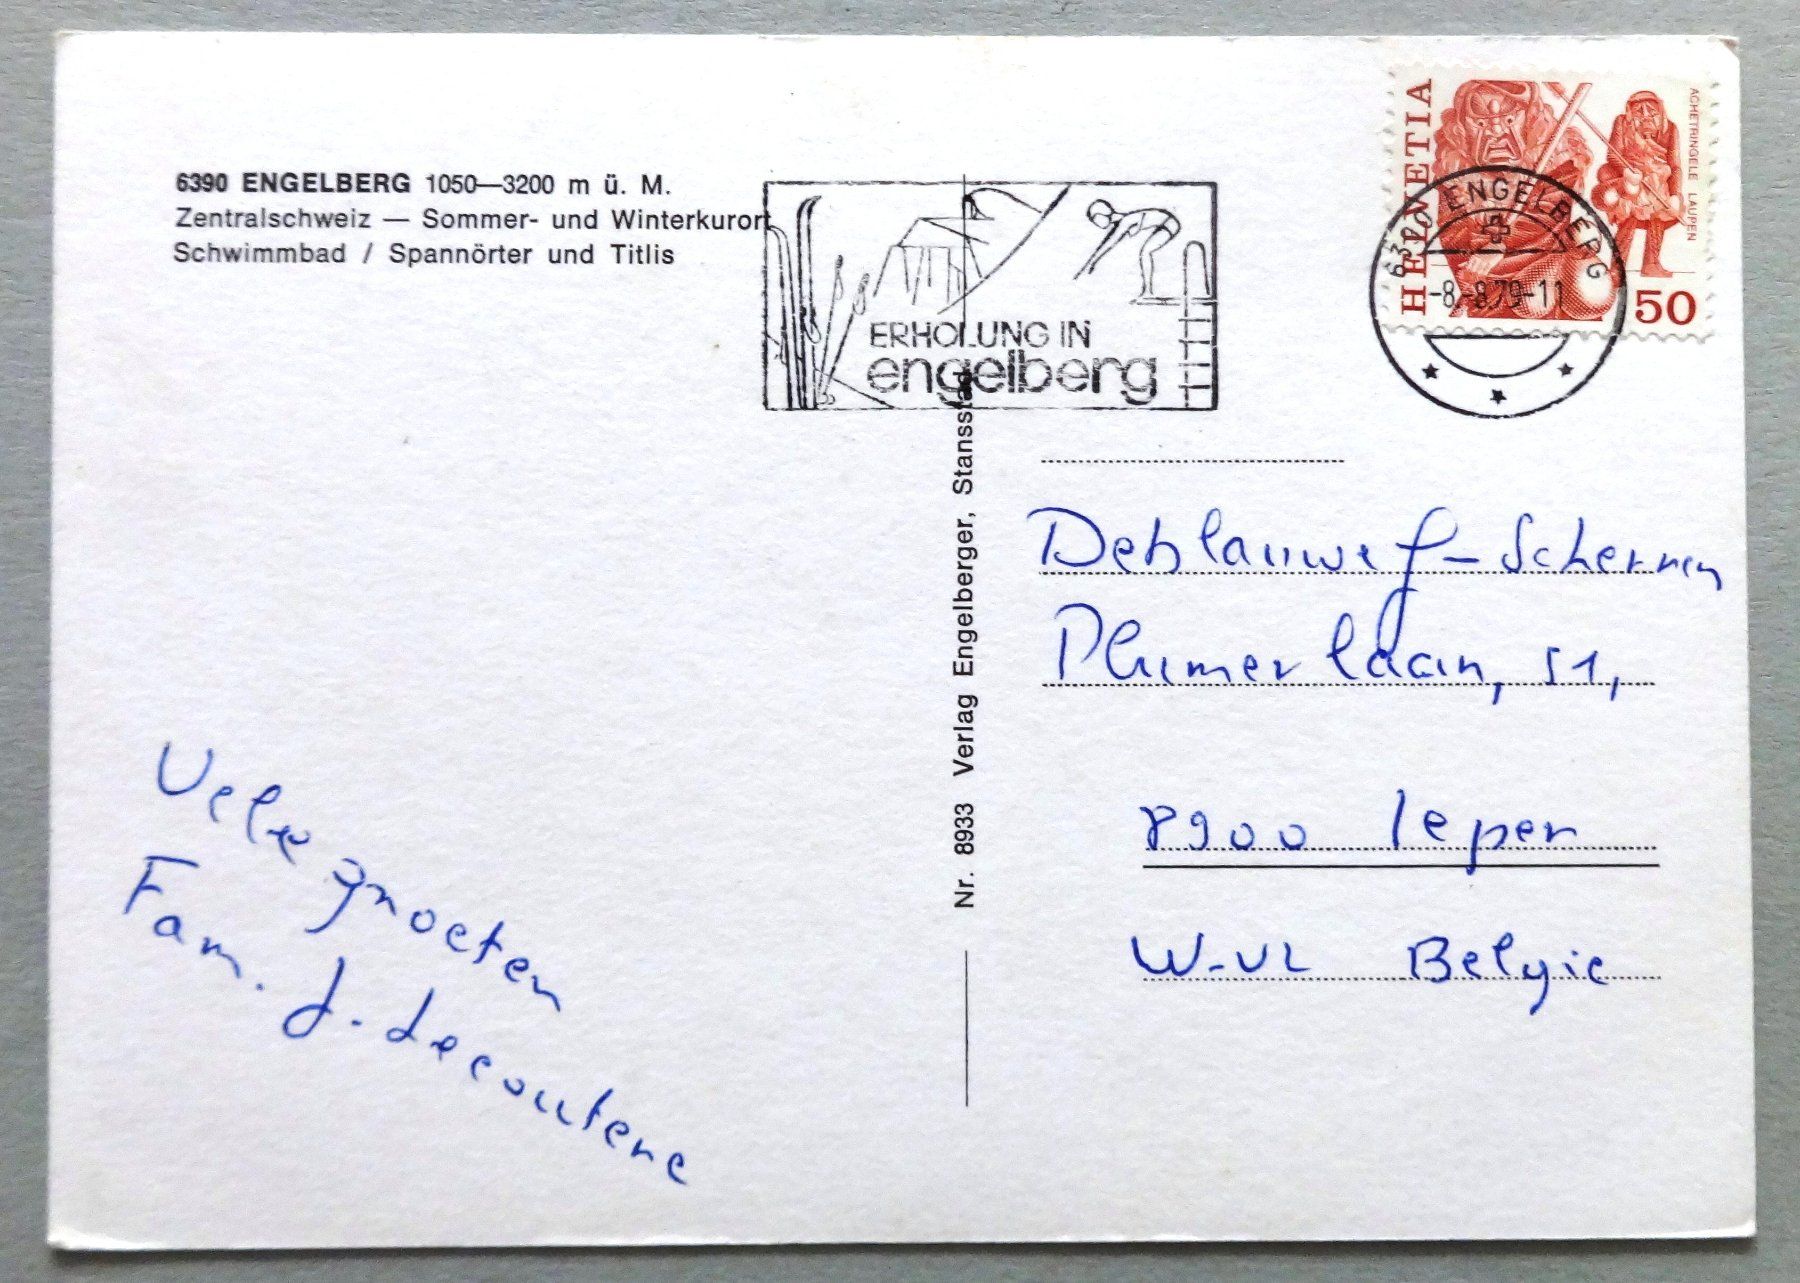 6390 ENGELBERG 1050—3200 m ü. M.
Zentralschweiz — Sommer- und Winterkurort
Schwimmbad / Spannörter und Titlis
ERHOLUNG IN
engelberg
HELVETIA
ACHETRINGELE LAUPEN
50
6390 ENGELBERG
-8.-8.79-11
Nr. 8933 Verlag Engelberger, Stansstad
Vele groeten
Fam. J. Lecoutere
Deblauwe
Plumerlaan, 51,
8900 Ieper
W-VL Belgie